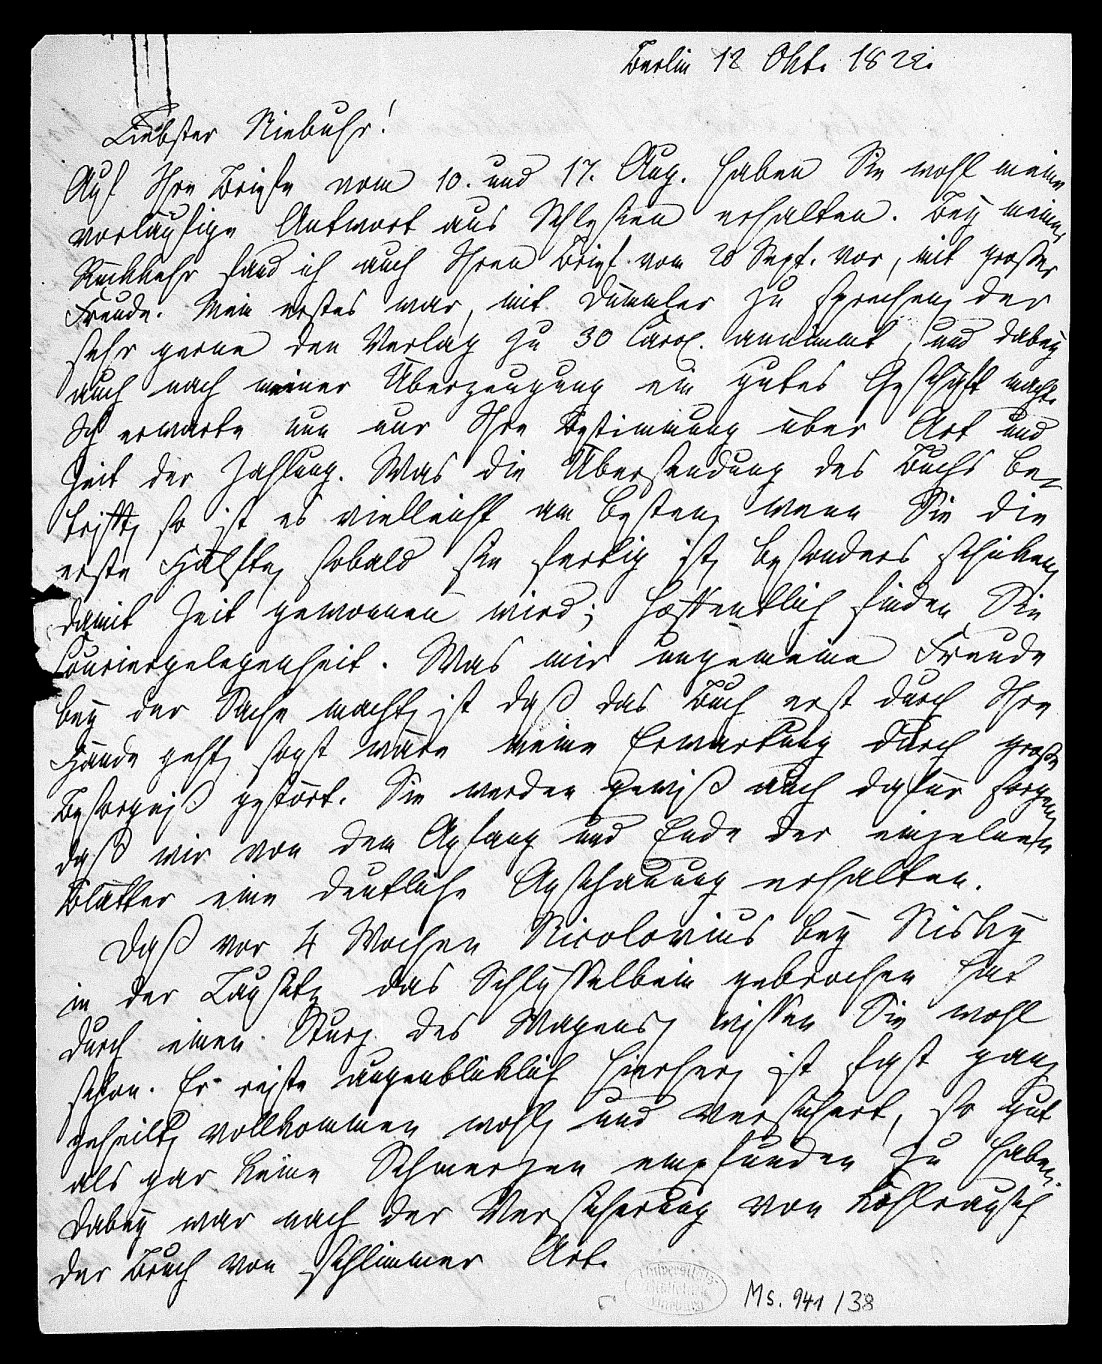 Berlin 12 Okt. 1822.
Liebster Niebuhr!
Auf Ihre Briefe vom 10. und 17. Aug. haben Sie wohl meine
vorläufige Antwort aus Schlesien erhalten. Bey meiner
Rückkehr fand ich auch Ihren Brief vom 20 Sept. vor, mit großer
Freude. Mein erstes war, mit Dümmler zu sprechen, der
sehr gerne den Verlag zu 30 Carol. annimmt, und dabey
auch nach meiner Überzeugung ein gutes Geschäft macht.
Ich erwarte nun nur Ihre Bestimmung über Art und
Zeit der Zahlung. Was die Übersendung des Buchs be-
trifft, so ist es vielleicht am besten, wenn Sie die
erste Hälfte, sobald sie fertig ist, besonders schicken,
damit Zeit gewonnen wird; hoffentlich finden Sie
Couriergelegenheit. Was mir ungemeine Freude
bey der Sache macht, ist daß das Buch erst durch Ihre
Hände geht, sonst wäre meine Erwartung durch große
Besorgniß gestört. Sie werden gewiß auch dafür sorgen,
daß wir von dem Anfang und Ende der einzelnen
Blätter eine deutliche Anschauung erhalten.
Daß vor 4 Wochen Nicolovius bey Nisky
in der Lausitz das Schlüsselbein gebrochen hat
durch einen Sturz des Wagens, wissen Sie wohl
schon. Er reiste augenblicklich hierher, ist fast ganz
geheilt, vollkommen wohl, und versichert, so gut
als gar keine Schmerzen empfunden zu haben.
Dabey war nach der Versicherung von Kohlrausch
der Bruch von schlimmer Art.
Ms. 941/38